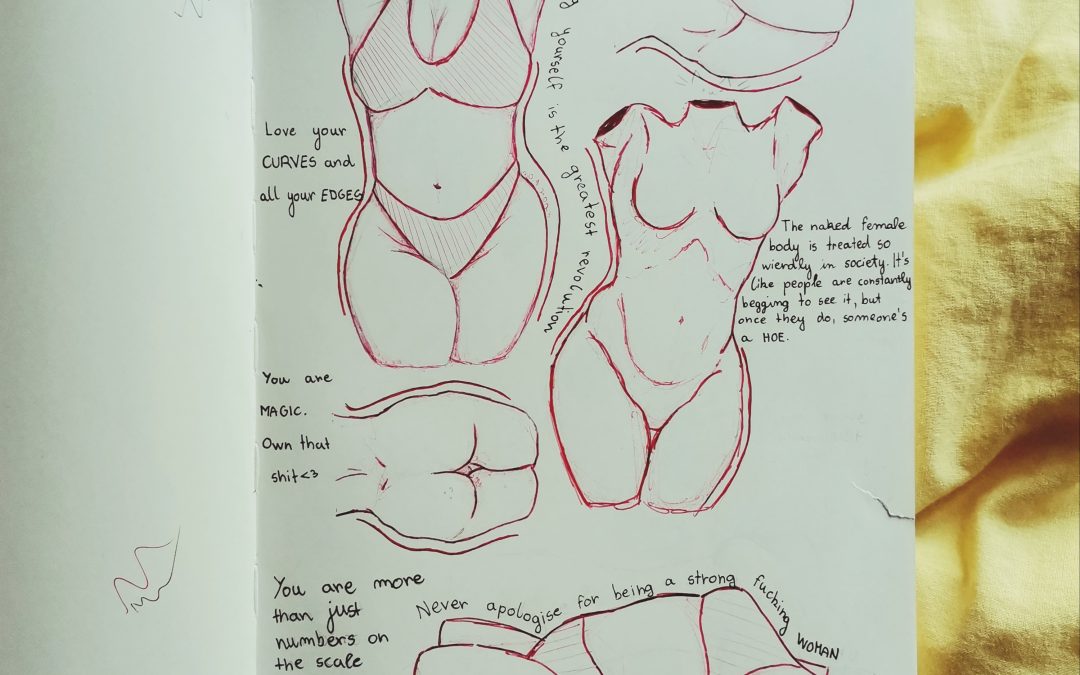 Love your
CURVES and
all your EDGES
yourself is the greatest revolution
The naked female
body is treated so
wierdly in society. It's
like people are constantly
begging to see it, but
once they do, someone's
a HOE.
You are
MAGIC.
Own that
shit<3
You are more
than just
numbers on
the scale
Never apologise for being a strong fucking WOMAN